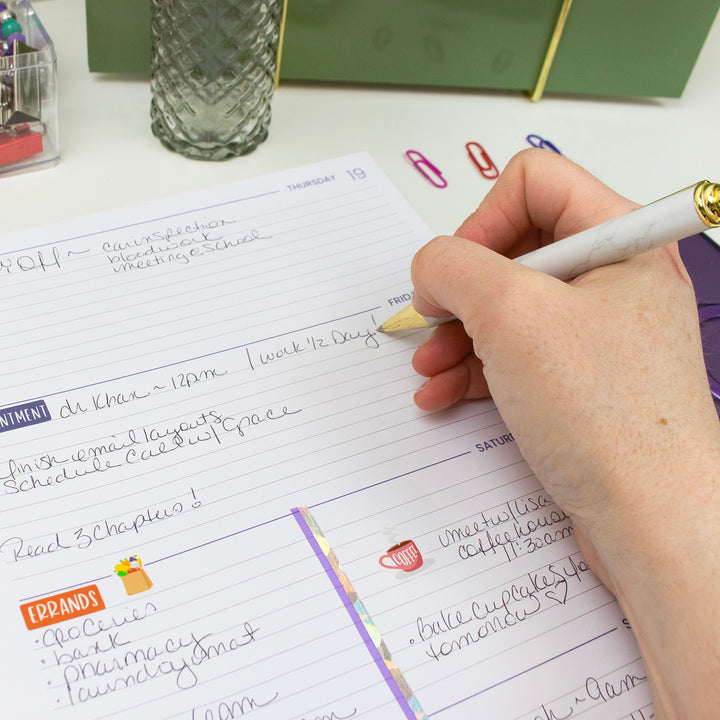 THURSDAY 19
OFF ~ car inspection
bloodwork
meeting @ school
FRID
NTMENT dr Khan ~ 12pm / work 1/2 Day!
finish email layouts
Schedule call w/ Grace
Read 3 Chapters!
SATUR
ERRANDS
• groceries
• bank
• pharmacy
• laundry @ mat
COFFEE
meet w/ lisa
coffeehouse
11:30am
• Bake cupcakes 4
tomorrow ♡
S
9am